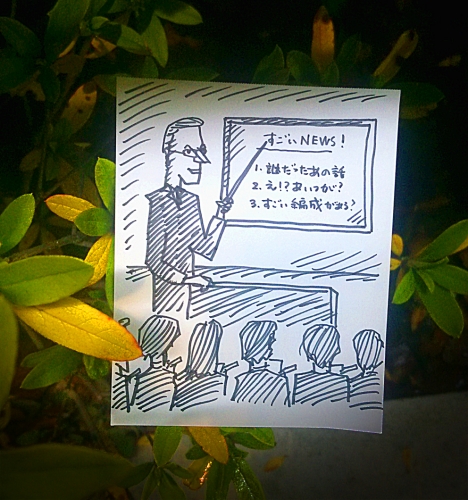 すごいNEWS!
1. 誰だったあの話
2. え!?あいつが?
3. すごい編成がある?